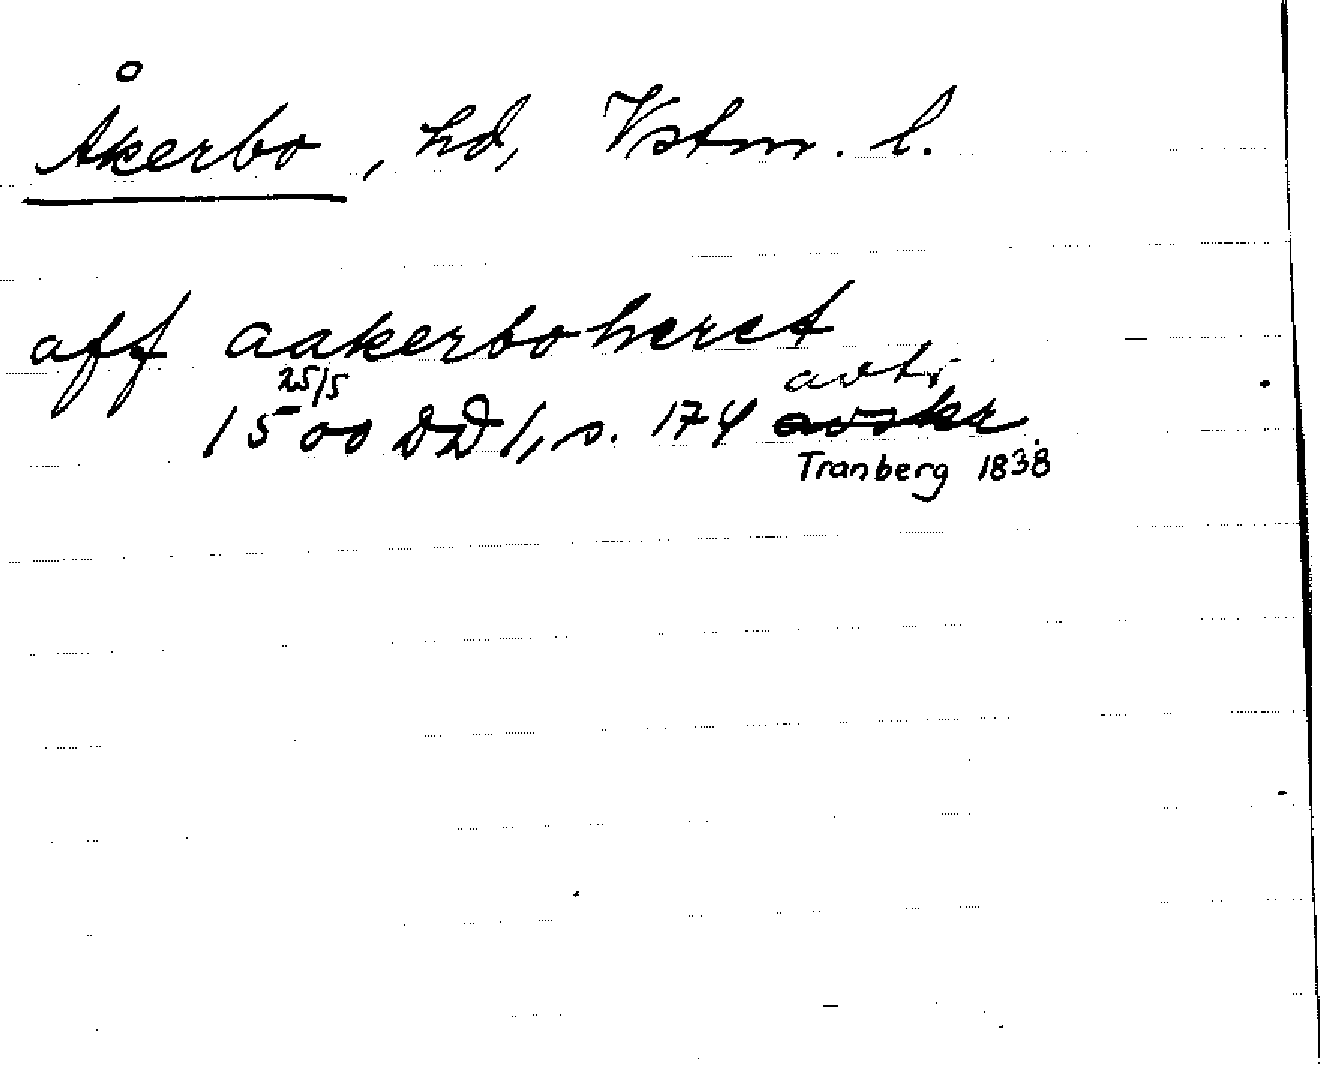 Åkerbo, hd, Vstm. l.
aff aakerboheret
25/5 avtr.
1500 DD 1, s. 174 avskr.
Tranberg 1838